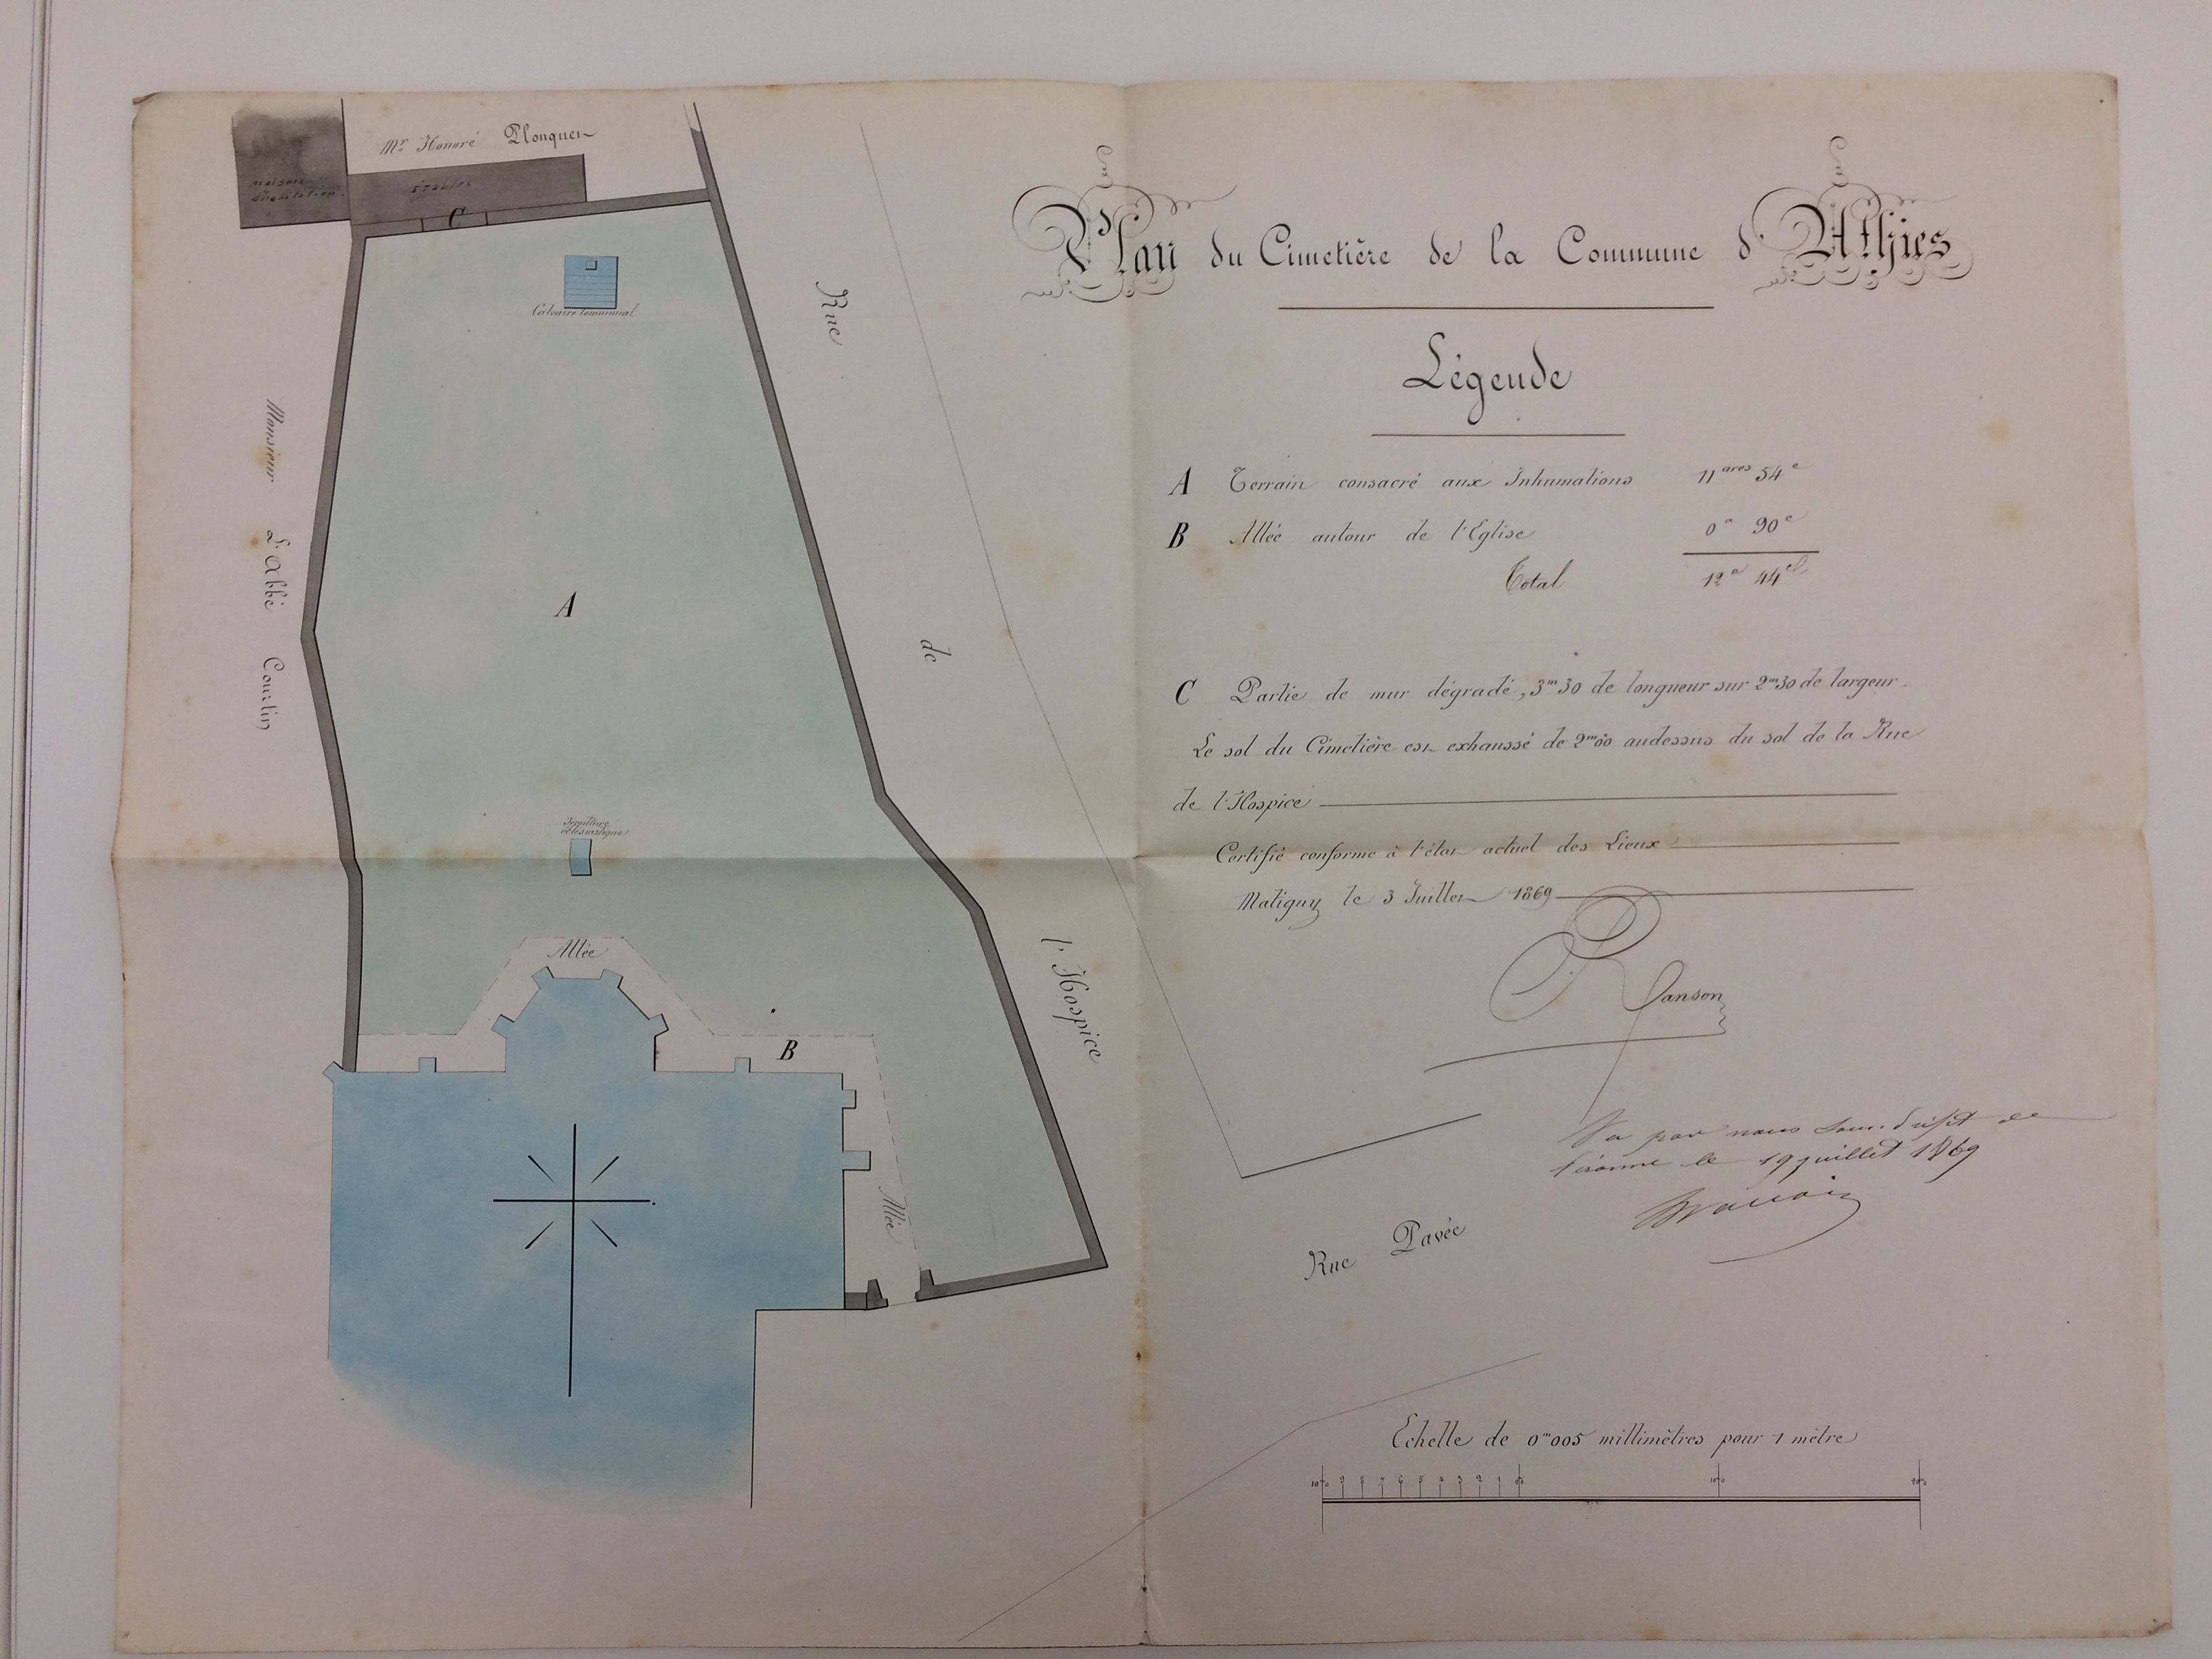 Plan du Cimetière de la Commune d'Athies
Légende
A Terrain consacré aux Inhumations 11 ares 54 c
B Allée autour de l'Eglise 0 a 90 c
Total 12 a 44 c
C Partie de mur dégradé, 3m30 de longueur sur 2m30 de largeur.
Le sol du Cimetière est exhaussé de 2m00 audessus du sol de la Rue
de l'Hospice
Certifié conforme à l'état actuel des Lieux
Matigny le 3 Juillet 1869
Sanson
Vu par nous Sous-Préfet de
Péronne le 19 juillet 1869
Rue Pavée
Echelle de 0m005 millimètres pour 1 mètre
10m 9 8 7 6 5 4 3 2 1 0m 10m 20m
Mr Honoré Plonquet
maison
d'habitation
Étables
C
Calvaire Communal
Rue de l'Hospice
Monsieur L'Abbé Courtin
A
Sépulture
Allée
B
Allée